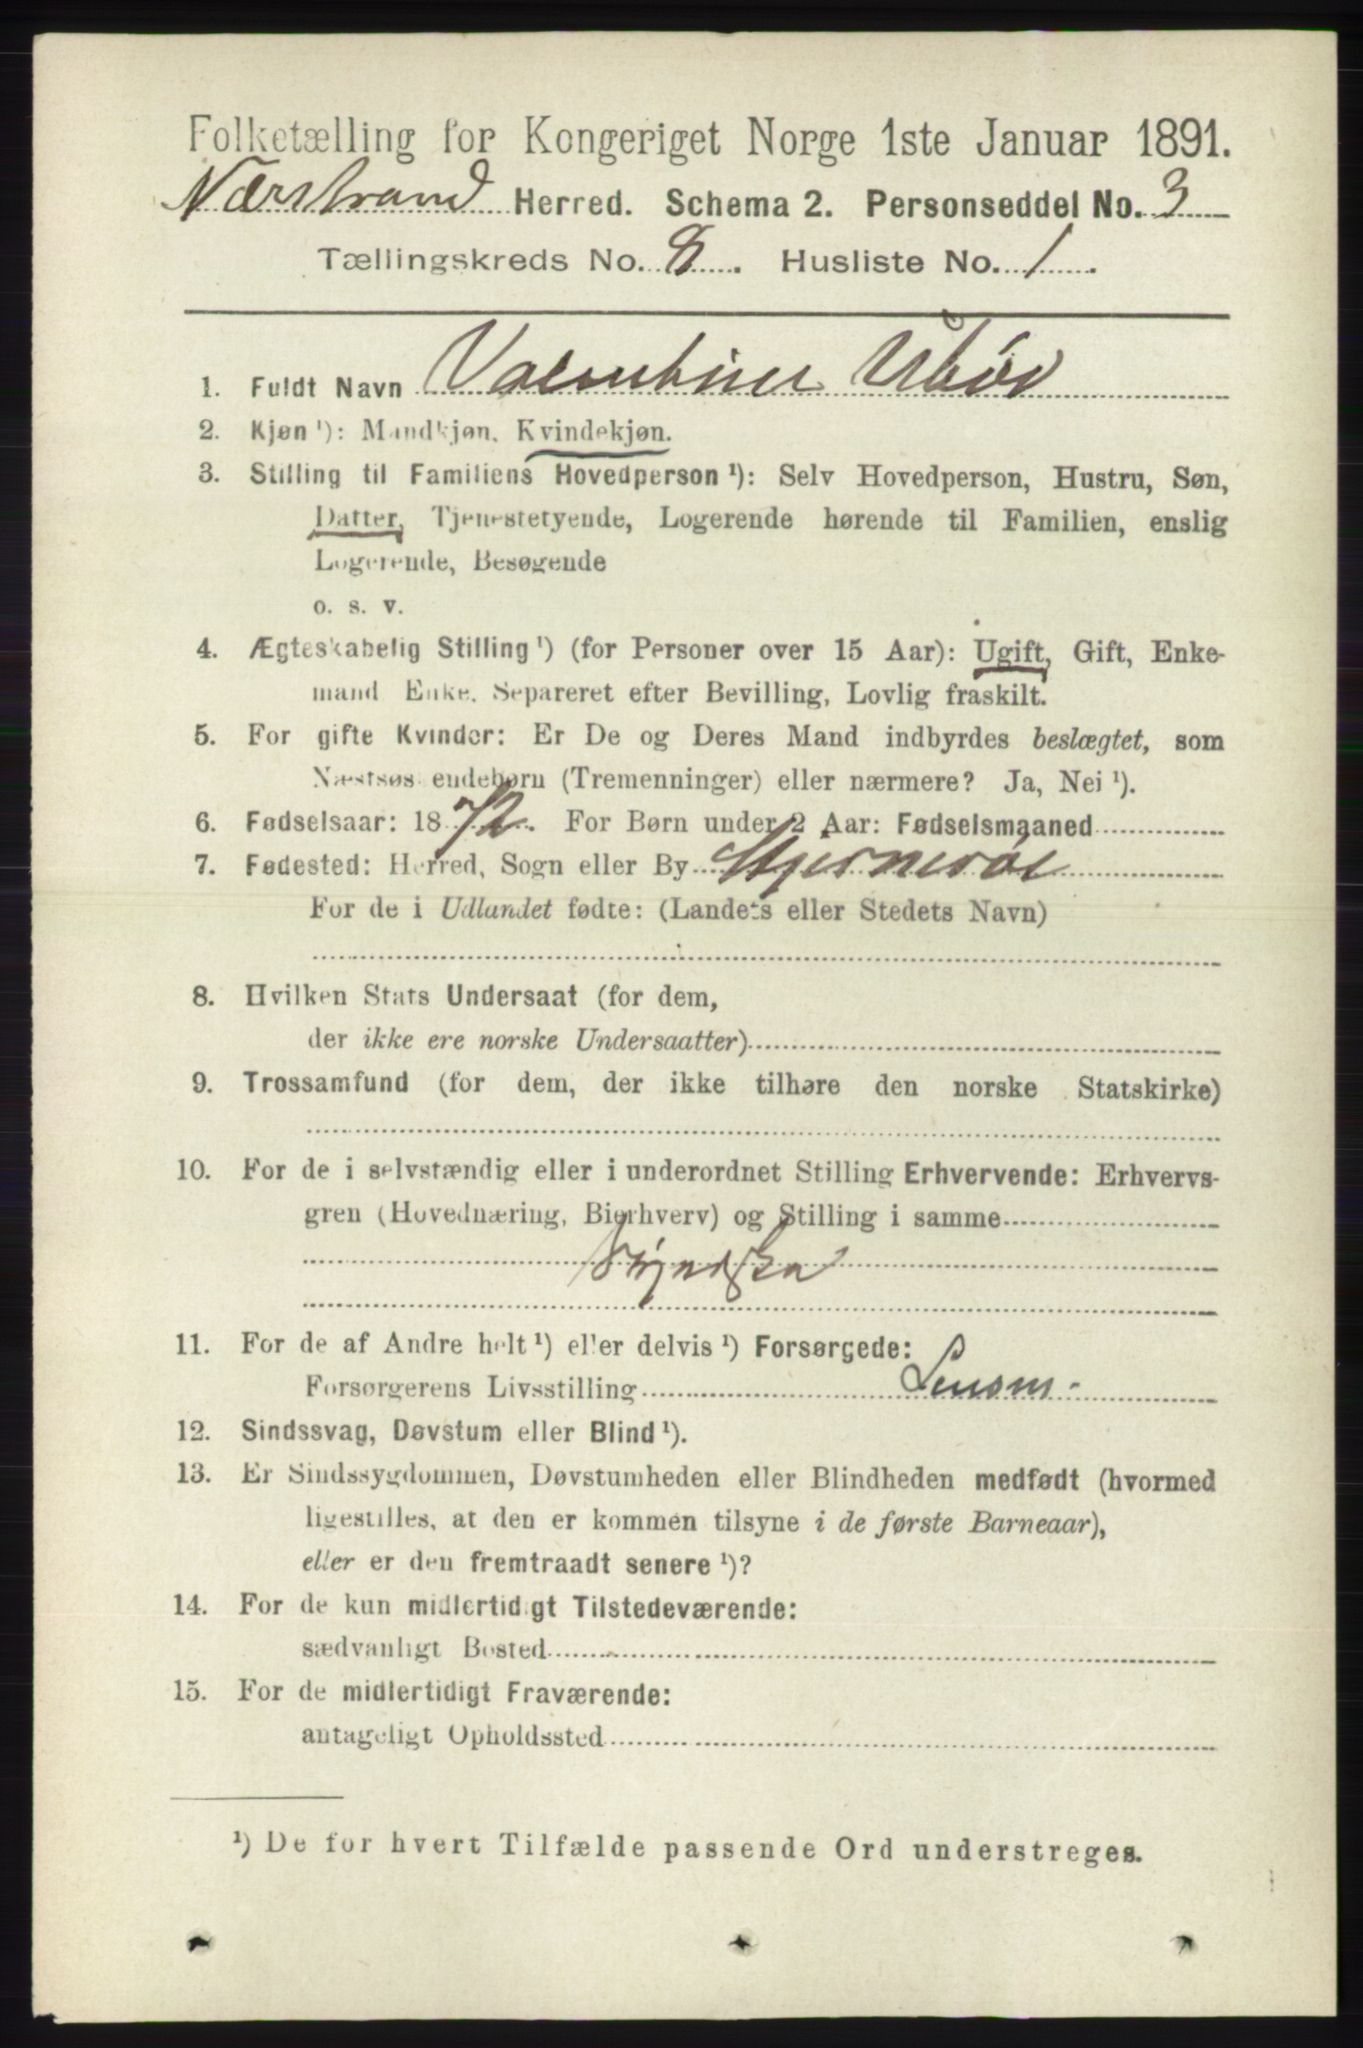 Folketælling for Kongeriget Norge 1ste Januar 1891.
Nærstrand Herred. Schema 2. Personseddel No. 3
Tællingskreds No. 8. Husliste No. 1.
1. Fuldt Navn Valentine Ubøe
2. Kjøn ¹): Mandkjøn. Kvindekjøn.
3. Stilling til Familiens Hovedperson ¹): Selv Hovedperson, Hustru, Søn,
Datter, Tjenestetyende, Logerende hørende til Familien, enslig
Logerende, Besøgende
o. s. v.
4. Ægteskabelig Stilling ¹) (for Personer over 15 Aar): Ugift, Gift, Enke-
mand Enke. Separeret efter Bevilling, Lovlig fraskilt.
5. For gifte Kvinder: Er De og Deres Mand indbyrdes beslægtet, som
Næstsøskendebørn (Tremenninger) eller nærmere? Ja, Nei ¹).
6. Fødselsaar: 1872. For Børn under 2 Aar: Fødselsmaaned
7. Fødested: Herred, Sogn eller By Stjernerøe
For de i Udlandet fødte: (Landets eller Stedets Navn)
8. Hvilken Stats Undersaat (for dem,
der ikke ere norske Undersaatter)
9. Trossamfund (for dem, der ikke tilhøre den norske Statskirke)
10. For de i selvstændig eller i underordnet Stilling Erhvervende: Erhvervs-
gren (Hovednæring, Bierhverv) og Stilling i samme
11. For de af Andre helt ¹) eller delvis ¹) Forsørgede:
Forsørgerens Livsstilling Lensm.
12. Sindssvag, Døvstum eller Blind ¹).
13. Er Sindssygdommen, Døvstumheden eller Blindheden medfødt (hvormed
ligestilles, at den er kommen tilsyne i de første Barneaar),
eller er den fremtraadt senere ¹)?
14. For de kun midlertidigt Tilstedeværende:
sædvanligt Bosted
15. For de midlertidigt Fraværende:
antageligt Opholdssted
¹) De for hvert Tilfælde passende Ord understreges.